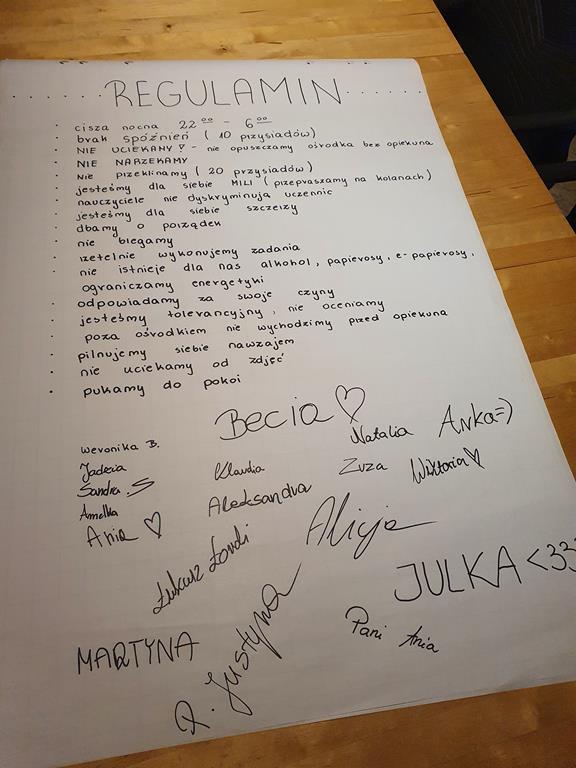 REGULAMIN
• cisza nocna 22⁰⁰ - 6⁰⁰
• brak spóźnień ( 10 przysiadów)
• NIE UCIEKAMY! - nie opuszczamy ośrodka bez opiekuna
• NIE NARZEKAMY
• Nie przeklinamy ( 20 przysiadów)
• jesteśmy dla siebie MILI ( przepraszamy na kolanach)
• nauczyciele nie dyskryminują uczennic
• jesteśmy dla siebie szczerzy
• dbamy o porządek
• nie biegamy
• rzetelnie wykonujemy zadania
• nie istnieje dla nas alkohol, papierosy, e-papierosy,
ograniczamy energetyki
• odpowiadamy za swoje czyny
• jesteśmy tolerancyjny, nie oceniamy
• poza ośrodkiem nie wychodzimy przed opiekuna
• pilnujemy siebie nawzajem
• nie uciekamy od zdjęć
• pukamy do pokoi
Becia ♡
Weronika B.
Natalia Anka=)
Jadzia
Klaudia
Zuza Wiktoria ♡
Sandra.S
Aleksandra
Amelka
Ania ♡
Alicja
Łukasz
JULKA <333
MARTYNA
P. Justyna
Pani Ania